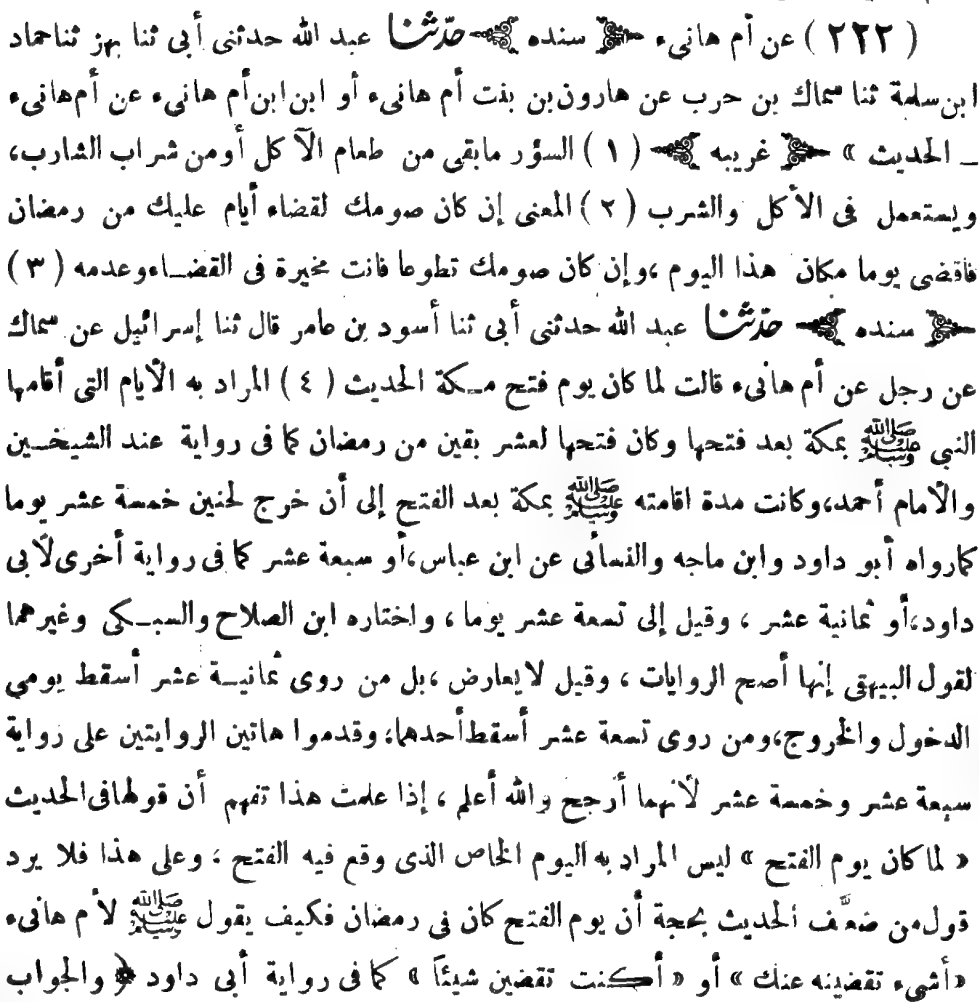 ( ٢٢٢ ) عن أم هانىء ﴿ سنده ﴾ حدّثنا عبد الله حدثنى أبى ثنا بهز ثنا حماد
ابن سلمة ثنا سماك بن حرب عن هارون بن بنت أم هانىء أو ابن ابن أم هانىء عن أم هانىء
ـ الحديث » ﴿ غريبه ﴾ ( ١ ) السؤر ما بقى من طعام الآكل أو من شراب الشارب،
ويستعمل فى الأكل والشرب ( ٢ ) المعنى إن كان صومك لقضاء أيام عليك من رمضان
فاقضى يوما مكان هذا اليوم ،وإن كان صومك تطوعا فانت مخيرة فى القضـاء وعدمه ( ٣ )
﴿ سنده ﴾ حدّثنا عبد الله حدثنى أبى ثنا أسود بن عامر قال ثنا إسرائيل عن سماك
عن رجل عن أم هانىء قالت لما كان يوم فتح مـكة الحديث ( ٤ ) المراد به الأيام التى أقامها
النبي ﷺ بمكة بعد فتحها وكان فتحها لعشر بقين من رمضان كما فى رواية عند الشيخـين
والأمام أحمد،وكانت مدة اقامته ﷺ بمكة بعد الفتح إلى أن خرج لحنين خمسة عشر يوما
كما رواه أبو داود وابن ماجه والنسائى عن ابن عباس،أو سبعة عشر كما فى رواية أخرى لأبى
داود،أو ثمانية عشر ، وقيل إلى تسعة عشر يوما ، واختاره ابن الصلاح والسبـكى وغيرهما
لقول البيهقى إنها أصح الروايات ، وقيل لا يعارض ،بل من روى ثمانيـة عشر أسقط يومي
الدخول والخروج،ومن روى تسعة عشر أسقط أحدهما، وقدموا هاتين الروايتين على رواية
سبعة عشر وخمسة عشر لأنهما أرجح والله أعلم ، إذا علمت هذا تفهم أن قولها فى الحديث
« لما كان يوم الفتح » ليس المراد به اليوم الخاص الذى وقع فيه الفتح ، وعلى هذا فلا يرد
قول من ضعَّف الحديث بحجة أن يوم الفتح كان فى رمضان فكيف يقول ﷺ لأم هانىء
«أشىء تقضينه عنك » أو « أكنت تقضين شيئاً » كما فى رواية أبى داود ﴿ والجواب